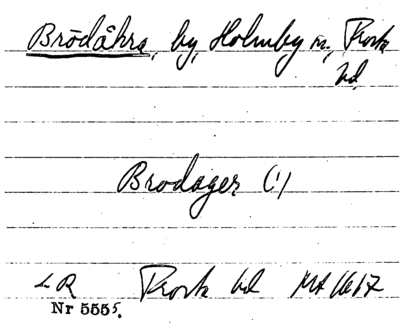 Brödåkra, by, Holmby sn, Frosta
hd
Brodager (!)
LR Frosta hd MA 1617
Nr 5555.